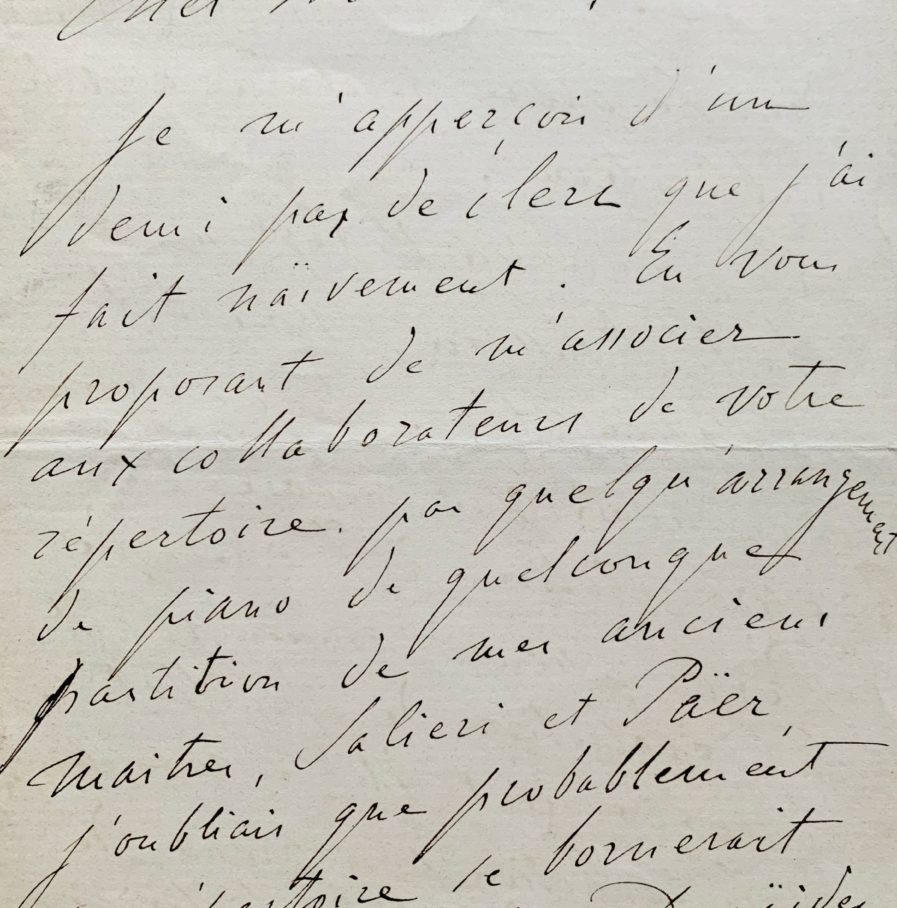 Je m'apperçois d'un
demi pas de clerc que j'ai
fait naïvement. En vous
proposant de m'associer
aux collaborateurs de votre
répertoire par quelqu'arrangement
de piano de quelconque
partition de mes anciens
maitres, Salieri et Päer,
j'oubliais que probablement
se bornerait